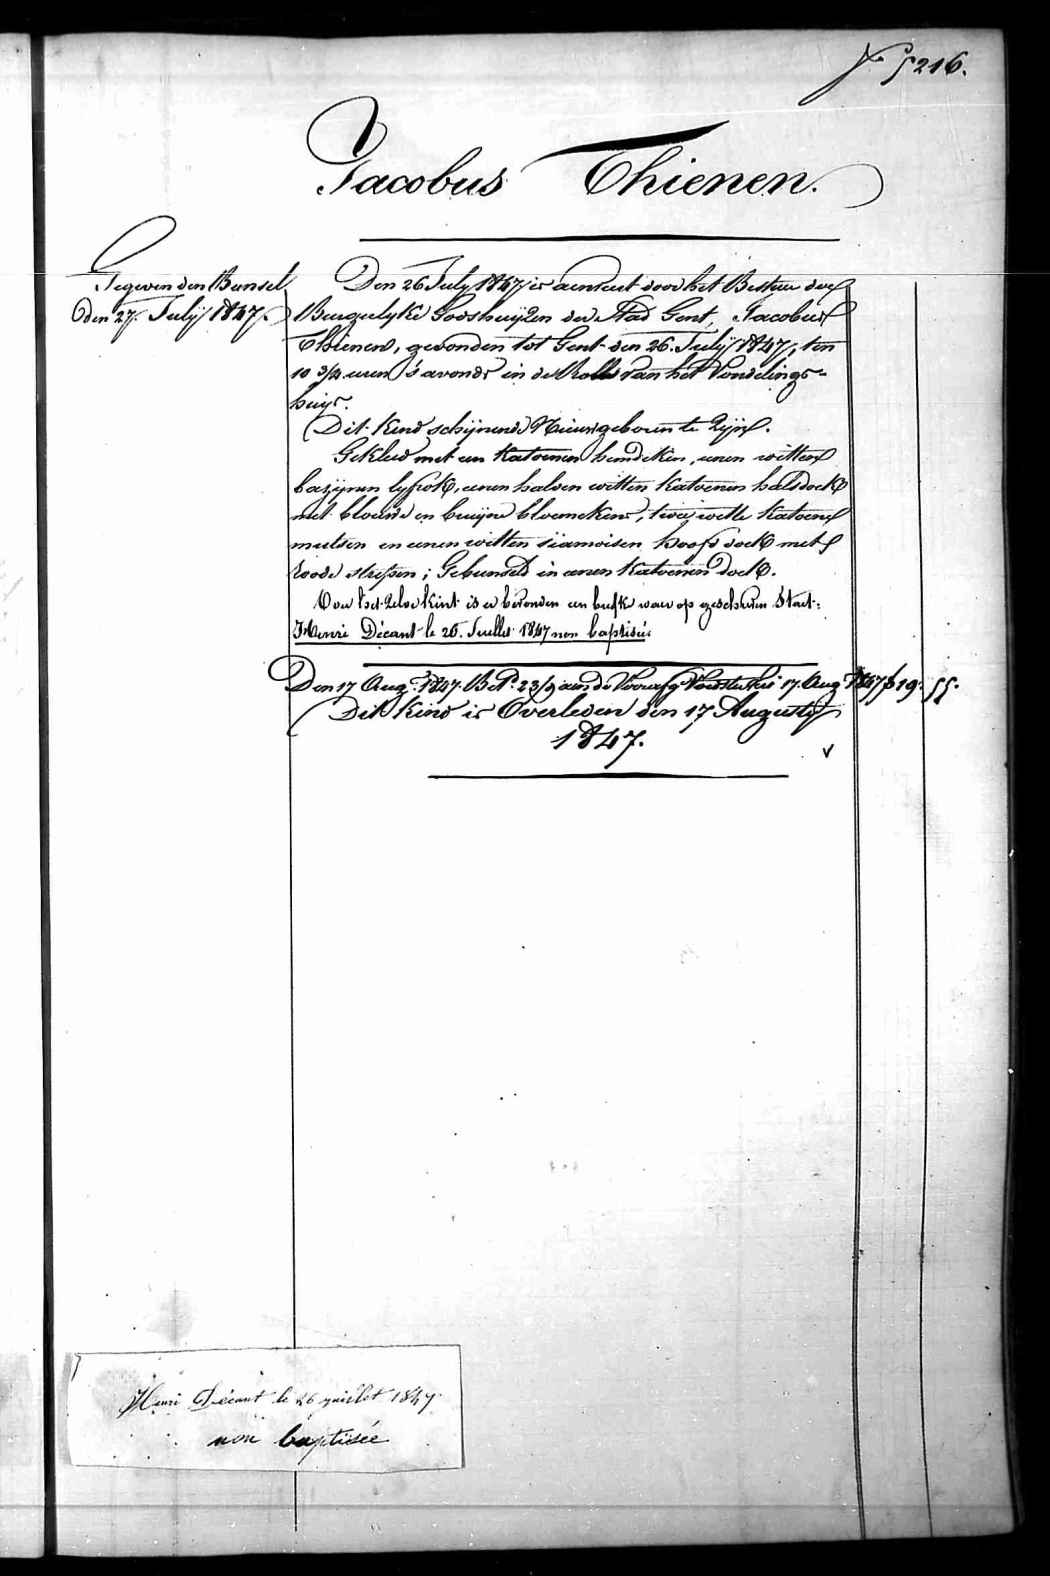 N.° 5216.
Jacobus Thienen.
Gegeven den Bunsel
den 27. Julij 1847.
Den 26 July 1847 is aenveut door het Bestuer der
Burgerlyke Godshuijzen der Stad Gent, Jacobus
Thienen, gevonden tot Gent den 26. Julij 1847, ten
10 3/4 uren 's avonds in de Rolle van het Vondelings-
huijs.
Dit kind schijnende Nieuwgeboren te zijn.
Gekleed met een katoenen hemdeken, eenen witten
bazijnen lyfrok, eenen halven witten katoenen halsdoek
met blouwe en bruijne bloemekens, twey witte katoene
mutsen en eenen witten siamoisen hoofd doek met
roode strepen; Gebunseld in eenen katoenen doek.
Over het zelve kint is er bevonden een briefke waer op geschreven Staet:
Henri Décant le 26. Juillet 1847 non baptisée
Den 17 Aug. 1847. Bet. 23/9 aen de Voorafg Voedsterhuis 17. Aug 1847 f 19.55.
Dit kind is Overleden den 17 Augusty
1847.
v
Henri Décant le 26 juillet 1847
non baptisée